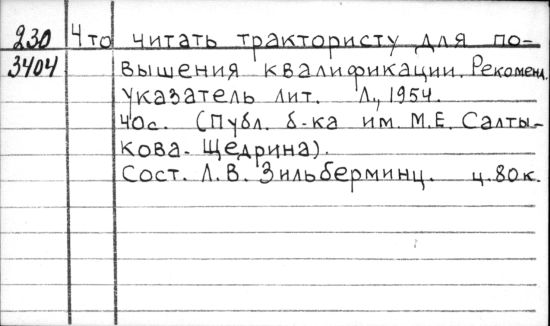 230 Что читать трактористу для по-
3404 вышения квалификации. Рекоменд.
указатель лит. Л., 1954.
40с. (Публ. б-ка им. М.Е. Салты-
кова-Щедрина).
Сост. Л.В. Зильберминц. ц. 80к.